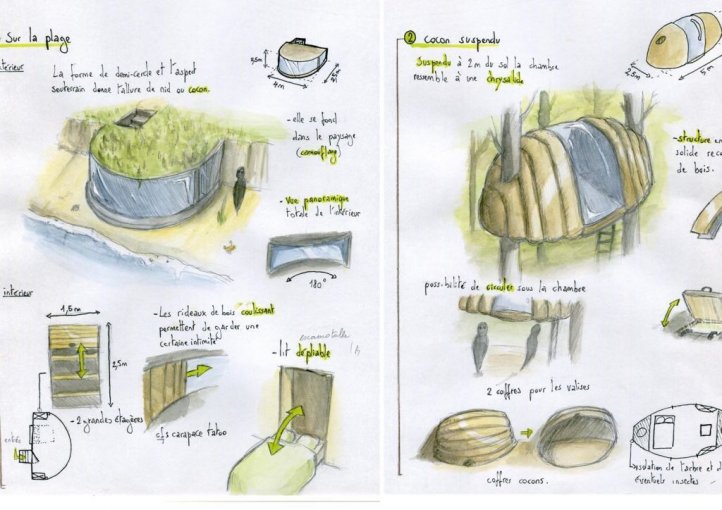 Sur la plage
La forme de demi-cercle et l'aspect
souterrain donne l'allure de nid ou cocon.
4m
- elle se fond
dans le paysage
(camouflage)
- Vue panoramique
totale de l'intérieur
180°
interieur
1,5m
2,5m
- Les rideaux de bois coulissant
permettent de garder une
certaine intimité
- lit dépliable
- 2 grandes étagères
cfs carapace tatoo
entrée
② cocon suspendu
Suspendu à 2m du sol la chambre
ressemble à une chrysalide
2,5m
5m
- structure en
solide
de bois.
possibilité de circuler sous la chambre
2 coffres pour les valises
coffres cocons.
isolation de l'arbre et d
éventuels insectes